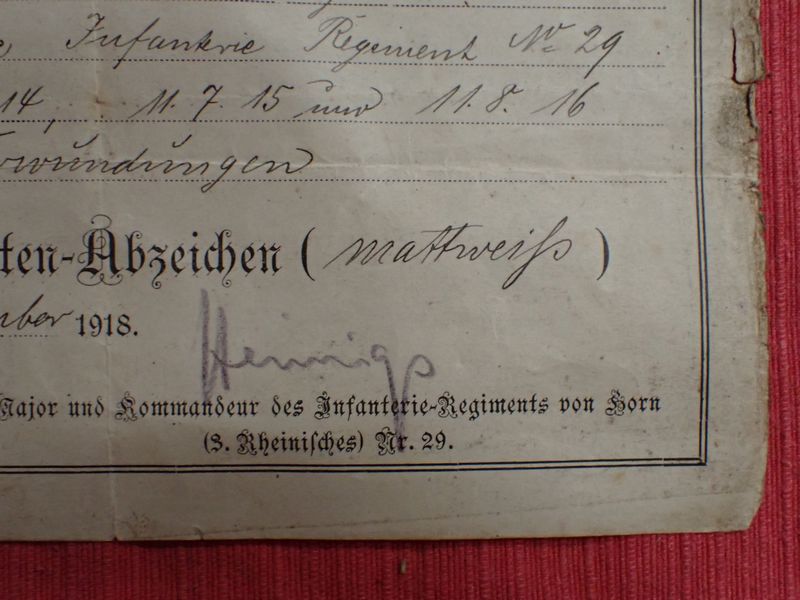 Infanterie Regiment No 29
14, 11.7.15 und 11.8.16
rwundungen
ten-Abzeichen (mattweiß)
mber 1918.
Hennigs
Major und Kommandeur des Infanterie-Regiments von Horn
(3. Rheinisches) Nr. 29.